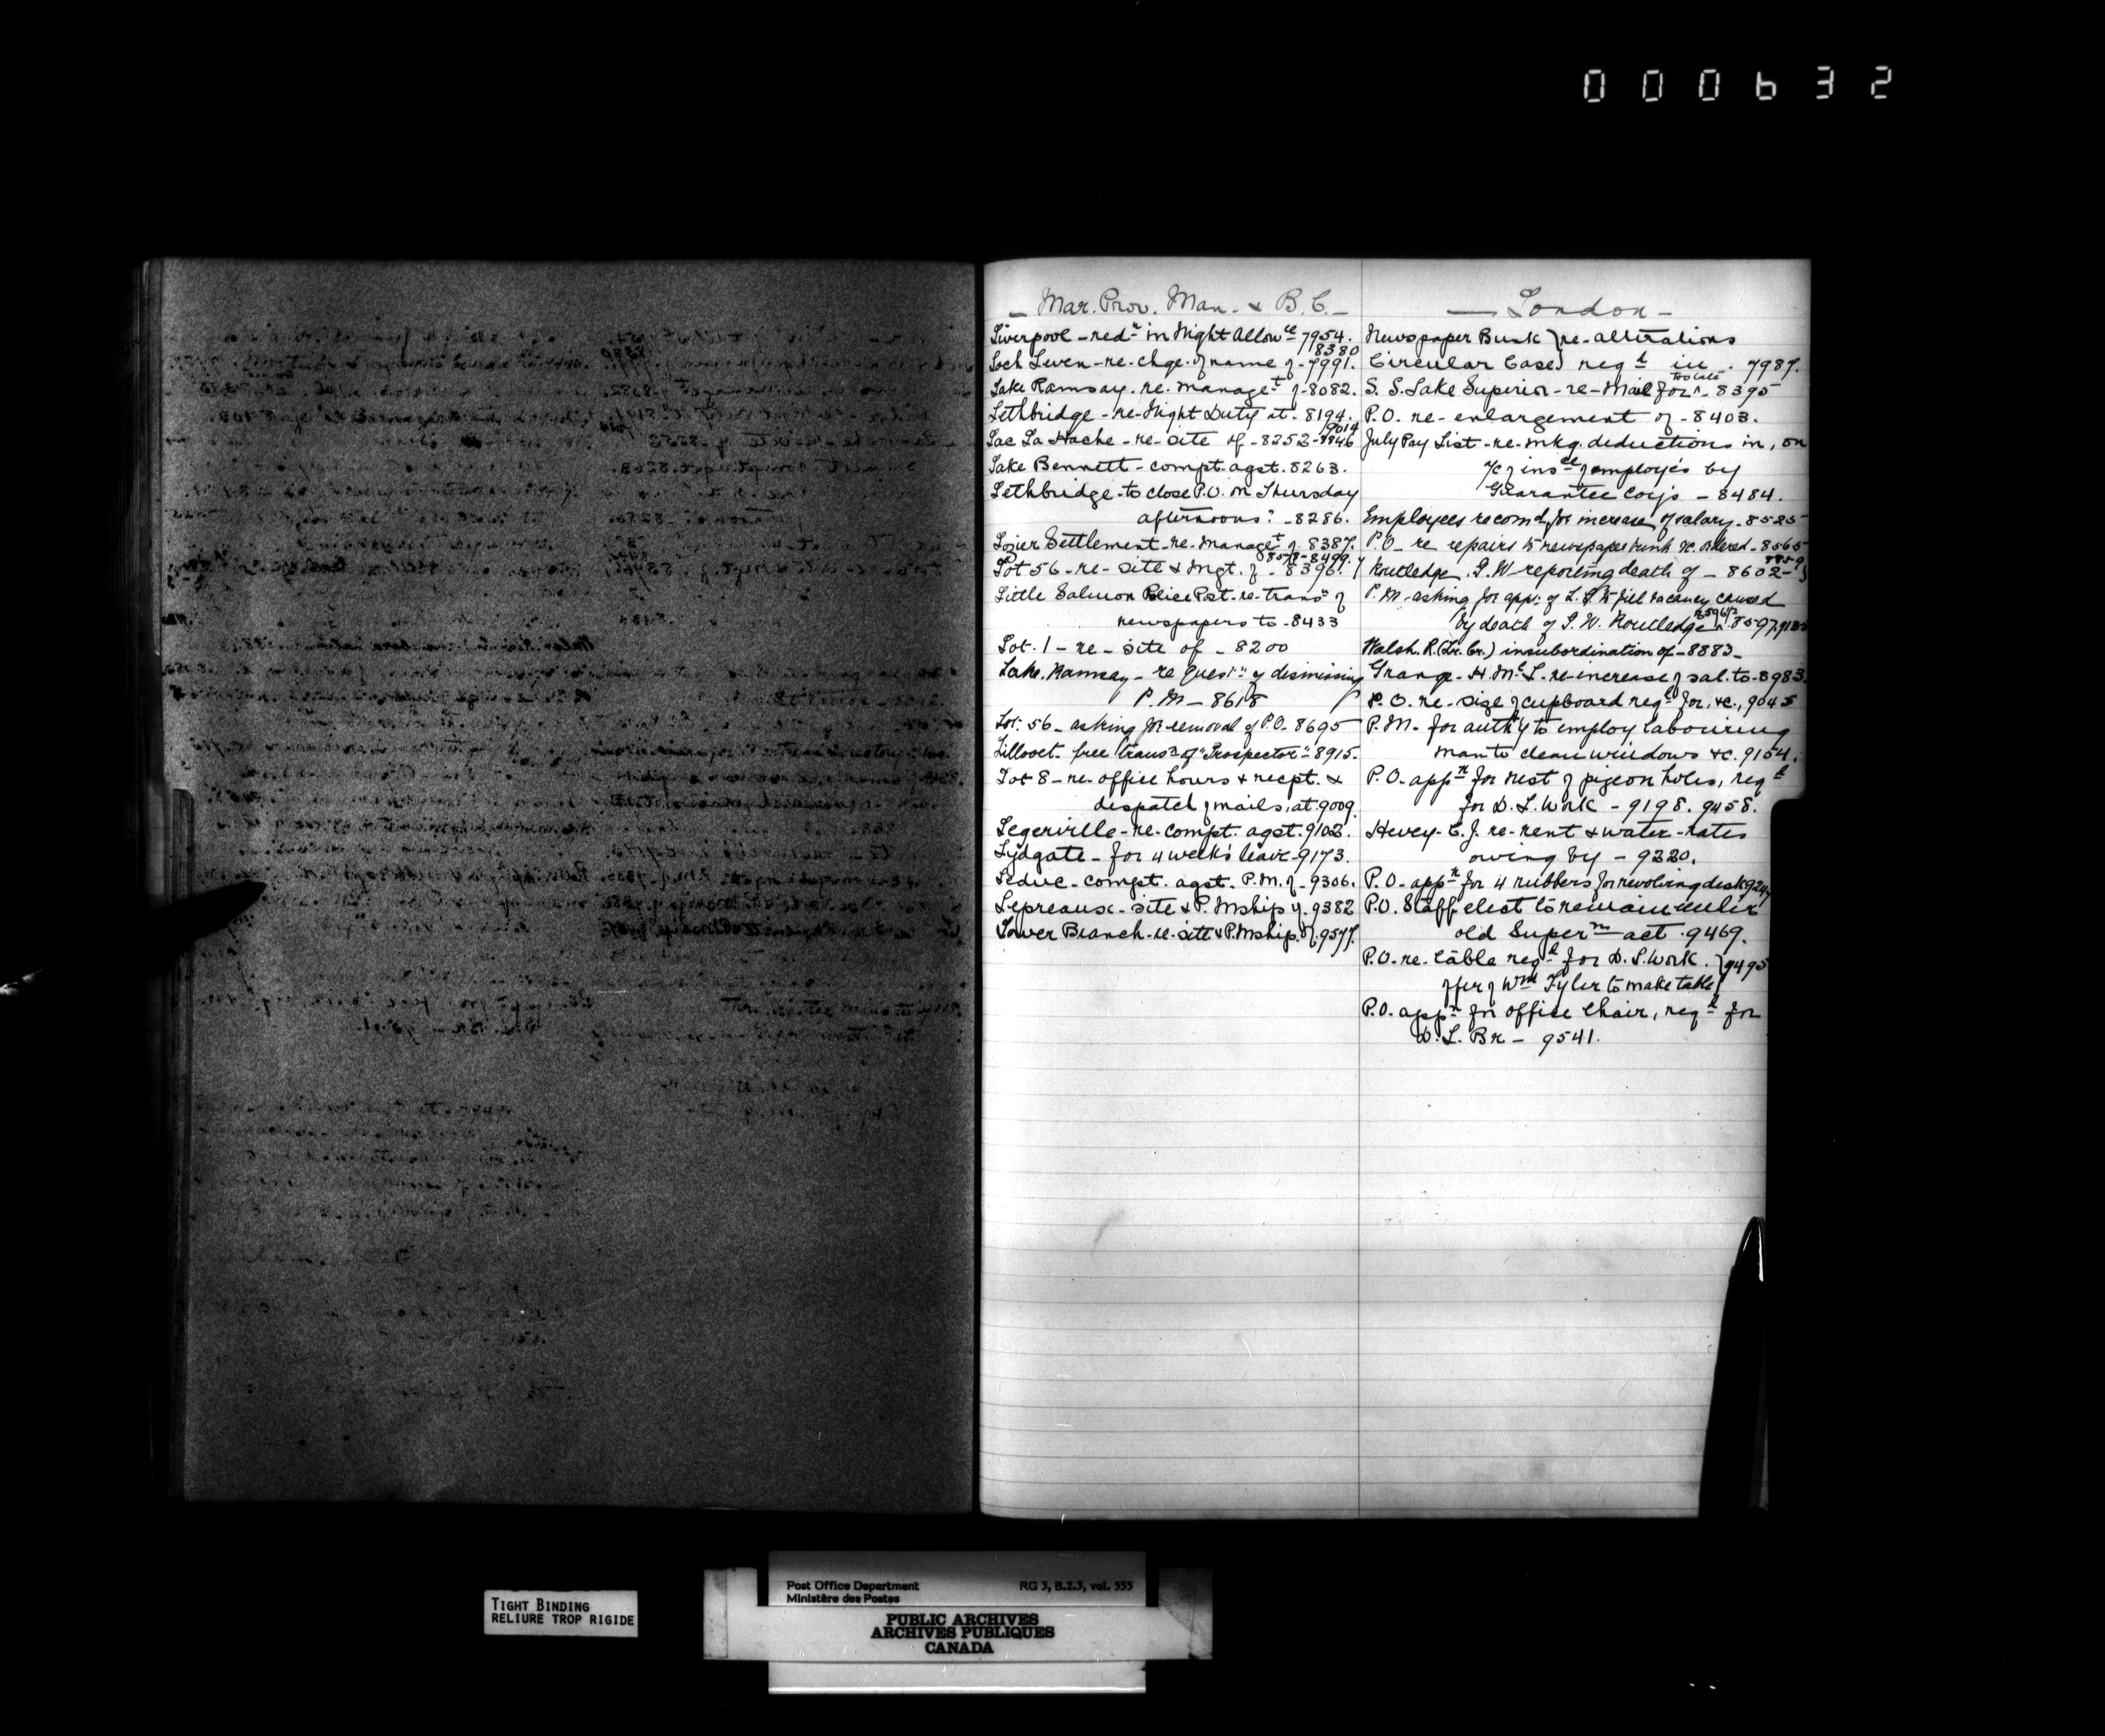 000632
— Mar. Prov. Man. & B.C. —
Liverpool – redn in Night Allowce 7954.
8380
Loch Leven – re – chge. of name of – 7991.
Lake Ramsay. re. managet of – 8082.
Lethbridge – re – Night Duty at – 8194.
9014
Lac La Hache – re – site of – 8252 – 8846
Lake Bennett – compt. agst. 8263.
Lethbridge – to close P.O. on Thursday
afternoons? – 8286.
Lozier Settlement – re – managet of 8387.
8578 – 8499.
Lot 56 – re – site & mgt. of – 8396.
Little Salmon Police Post – re – transn of
newspapers to – 8433
Lot. 1 – re – site of – 8200
Lake. Ramsay – re questn of dismissing
P.M – 8618
Lot. 56 – asking for removal of P.O. 8695
Lillooet – free transn of "Prospector" – 8915.
Lot 8 – re – office hours & recpt. &
despatch of mails, at. 9009.
Legerville – re – compt. agst. 9102.
Lydgate – for 4 week's leave – 9173.
Leduc – compt. agst. P.M. of – 9306.
Lepreaux – site & P.Mship of. 9382
Lower Branch – re – site & P.Mship. of. 9577.
— London —
Newspaper Bunk } re – alterations
Circular Case } reqd in . 7987.
too late
S. S. Lake Superior – re – Mail for ^ – 8395
P.O. re – enlargement of – 8403.
July Pay List – re – mkg. deductions in, on
a/c of insce of employés by
Guarantee Coy's – 8484.
Employees recomd for increase of salary – 8525
P.O – re repairs to newspaper bunk &c. ordered – 8565
8859
Routledge. T. W reporting death of – 8602 –
P. M – asking for appt of L. S. to fill vacancy caused
by death of T. W. Routledge ^ 8597.
Walsh. R. (Lr. Cr.) insubordination of – 8883 –
Grange – H. McL. re – increase of sal. to – 8983.
P.O. re – size of cupboard reqd for, &c., 9045
P.M. for auth'y to employ labouring
man to clean windows &c. 9154.
P.O. appn for nest of pigeon holes, reqd
for D.L. Work – 9198. 9458.
Hevey – C. J. re – rent & water – rates
owing by – 9220.
P.O – appn for 4 rubbers for revolving desk 924
P.O. Staff elect to remain under
old Supern act . 9469.
P.O. re – table reqd for D.L. Work. } 9495
offer of Wm Tyler to make table }
P.O. appn for office Chair, reqd for
D.L. Br – 9541.
TIGHT BINDING
RELIURE TROP RIGIDE
Post Office Department RG 3, B.2.3, vol. 555
Ministère des Postes
PUBLIC ARCHIVES
ARCHIVES PUBLIQUES
CANADA